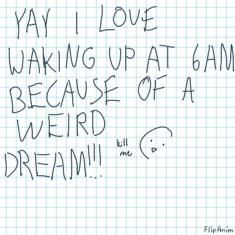 YAY I LOVE
WAKING UP AT 6AM
BECAUSE OF A
WEIRD
DREAM!!!
kill
me
FlipAnim